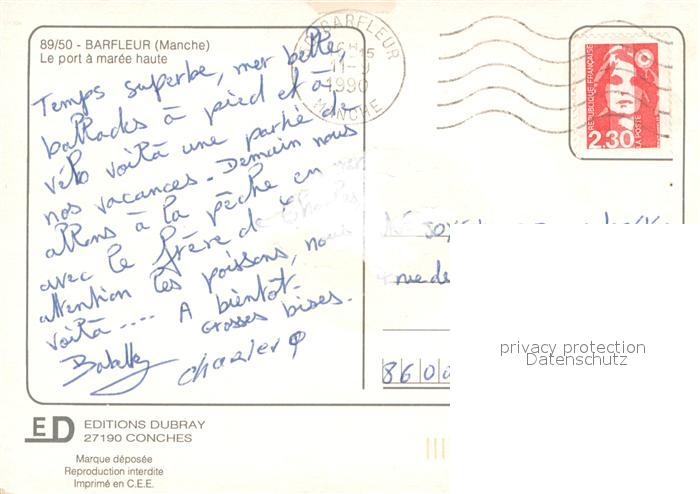 89/50 - BARFLEUR (Manche)
Le port à marée haute
Temps superbe, mer belle,
ballades à pied et à
vélo voilà une partie de
nos vacances - Demain nous
allons à la pêche en mer
avec le frère de Charles
attention les poissons, nous
voilà .... A bientôt.
Grosses bises.
Charles
BARFLEUR
1990
MANCHE
REPUBLIQUE FRANÇAISE
LA POSTE
2,30
rue de
8600
privacy protection
Datenschutz
ED
EDITIONS DUBRAY
27190 CONCHES
Marque déposée
Reproduction interdite
Imprimé en C.E.E.